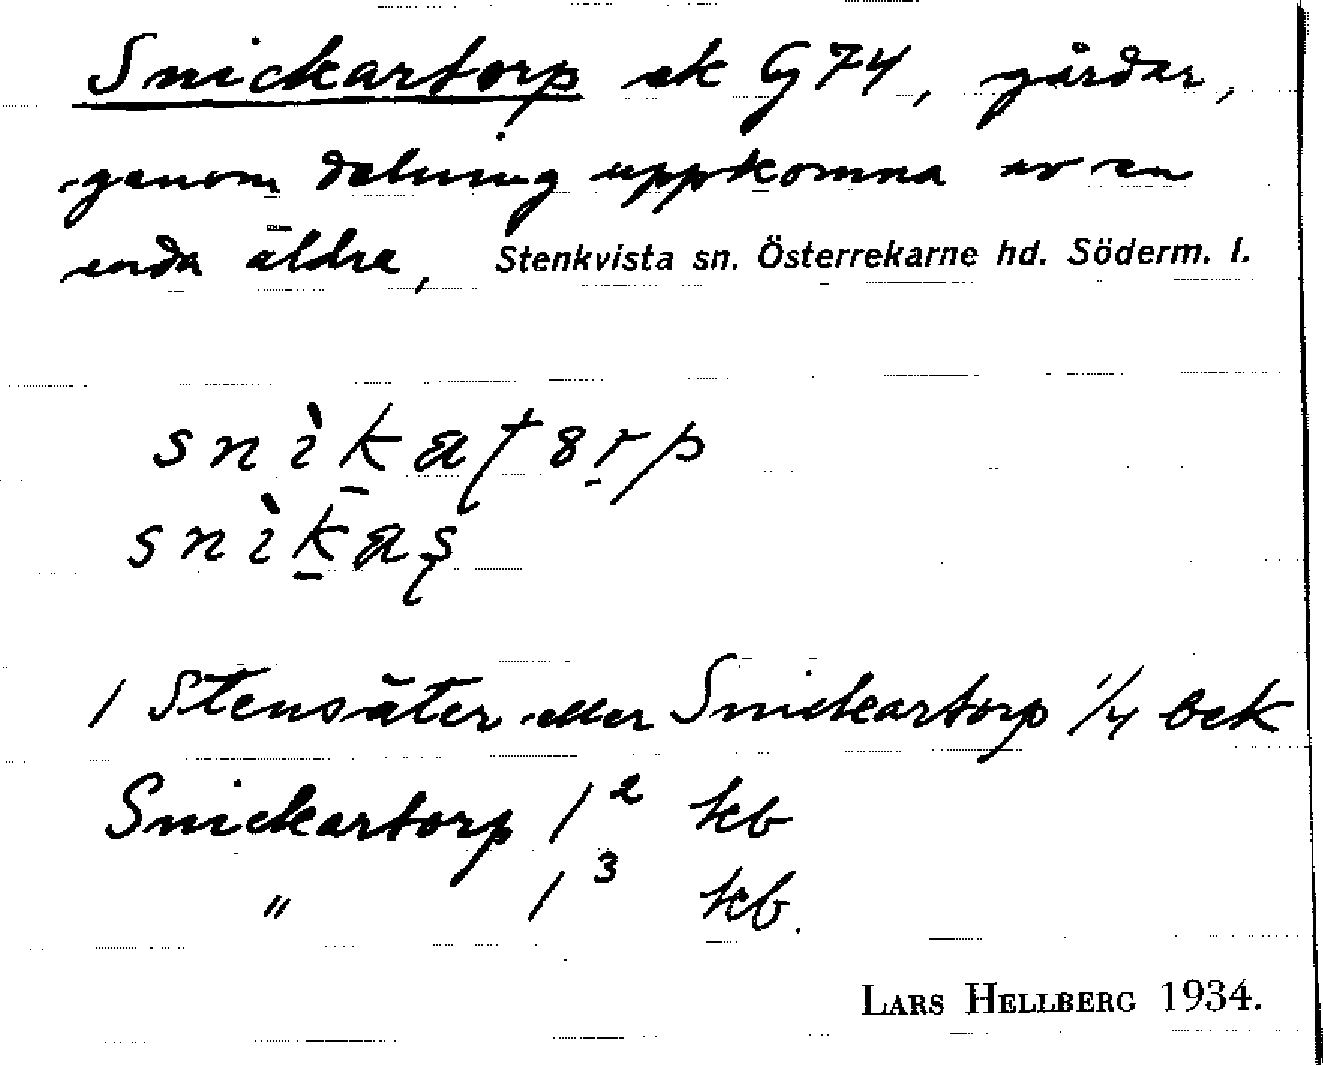 Snickartorp ek G74, gårdar,
genom delning uppkomna av en
enda äldre, Stenkvista sn. Österrekarne hd. Söderm. l.
snìkaʈ8rp
snìkaʂ
1 Stensäter eller Snickartorp 1/4 bek
Snickartorp 1² kb
" 1³ kb.
LARS HELLBERG 1934.